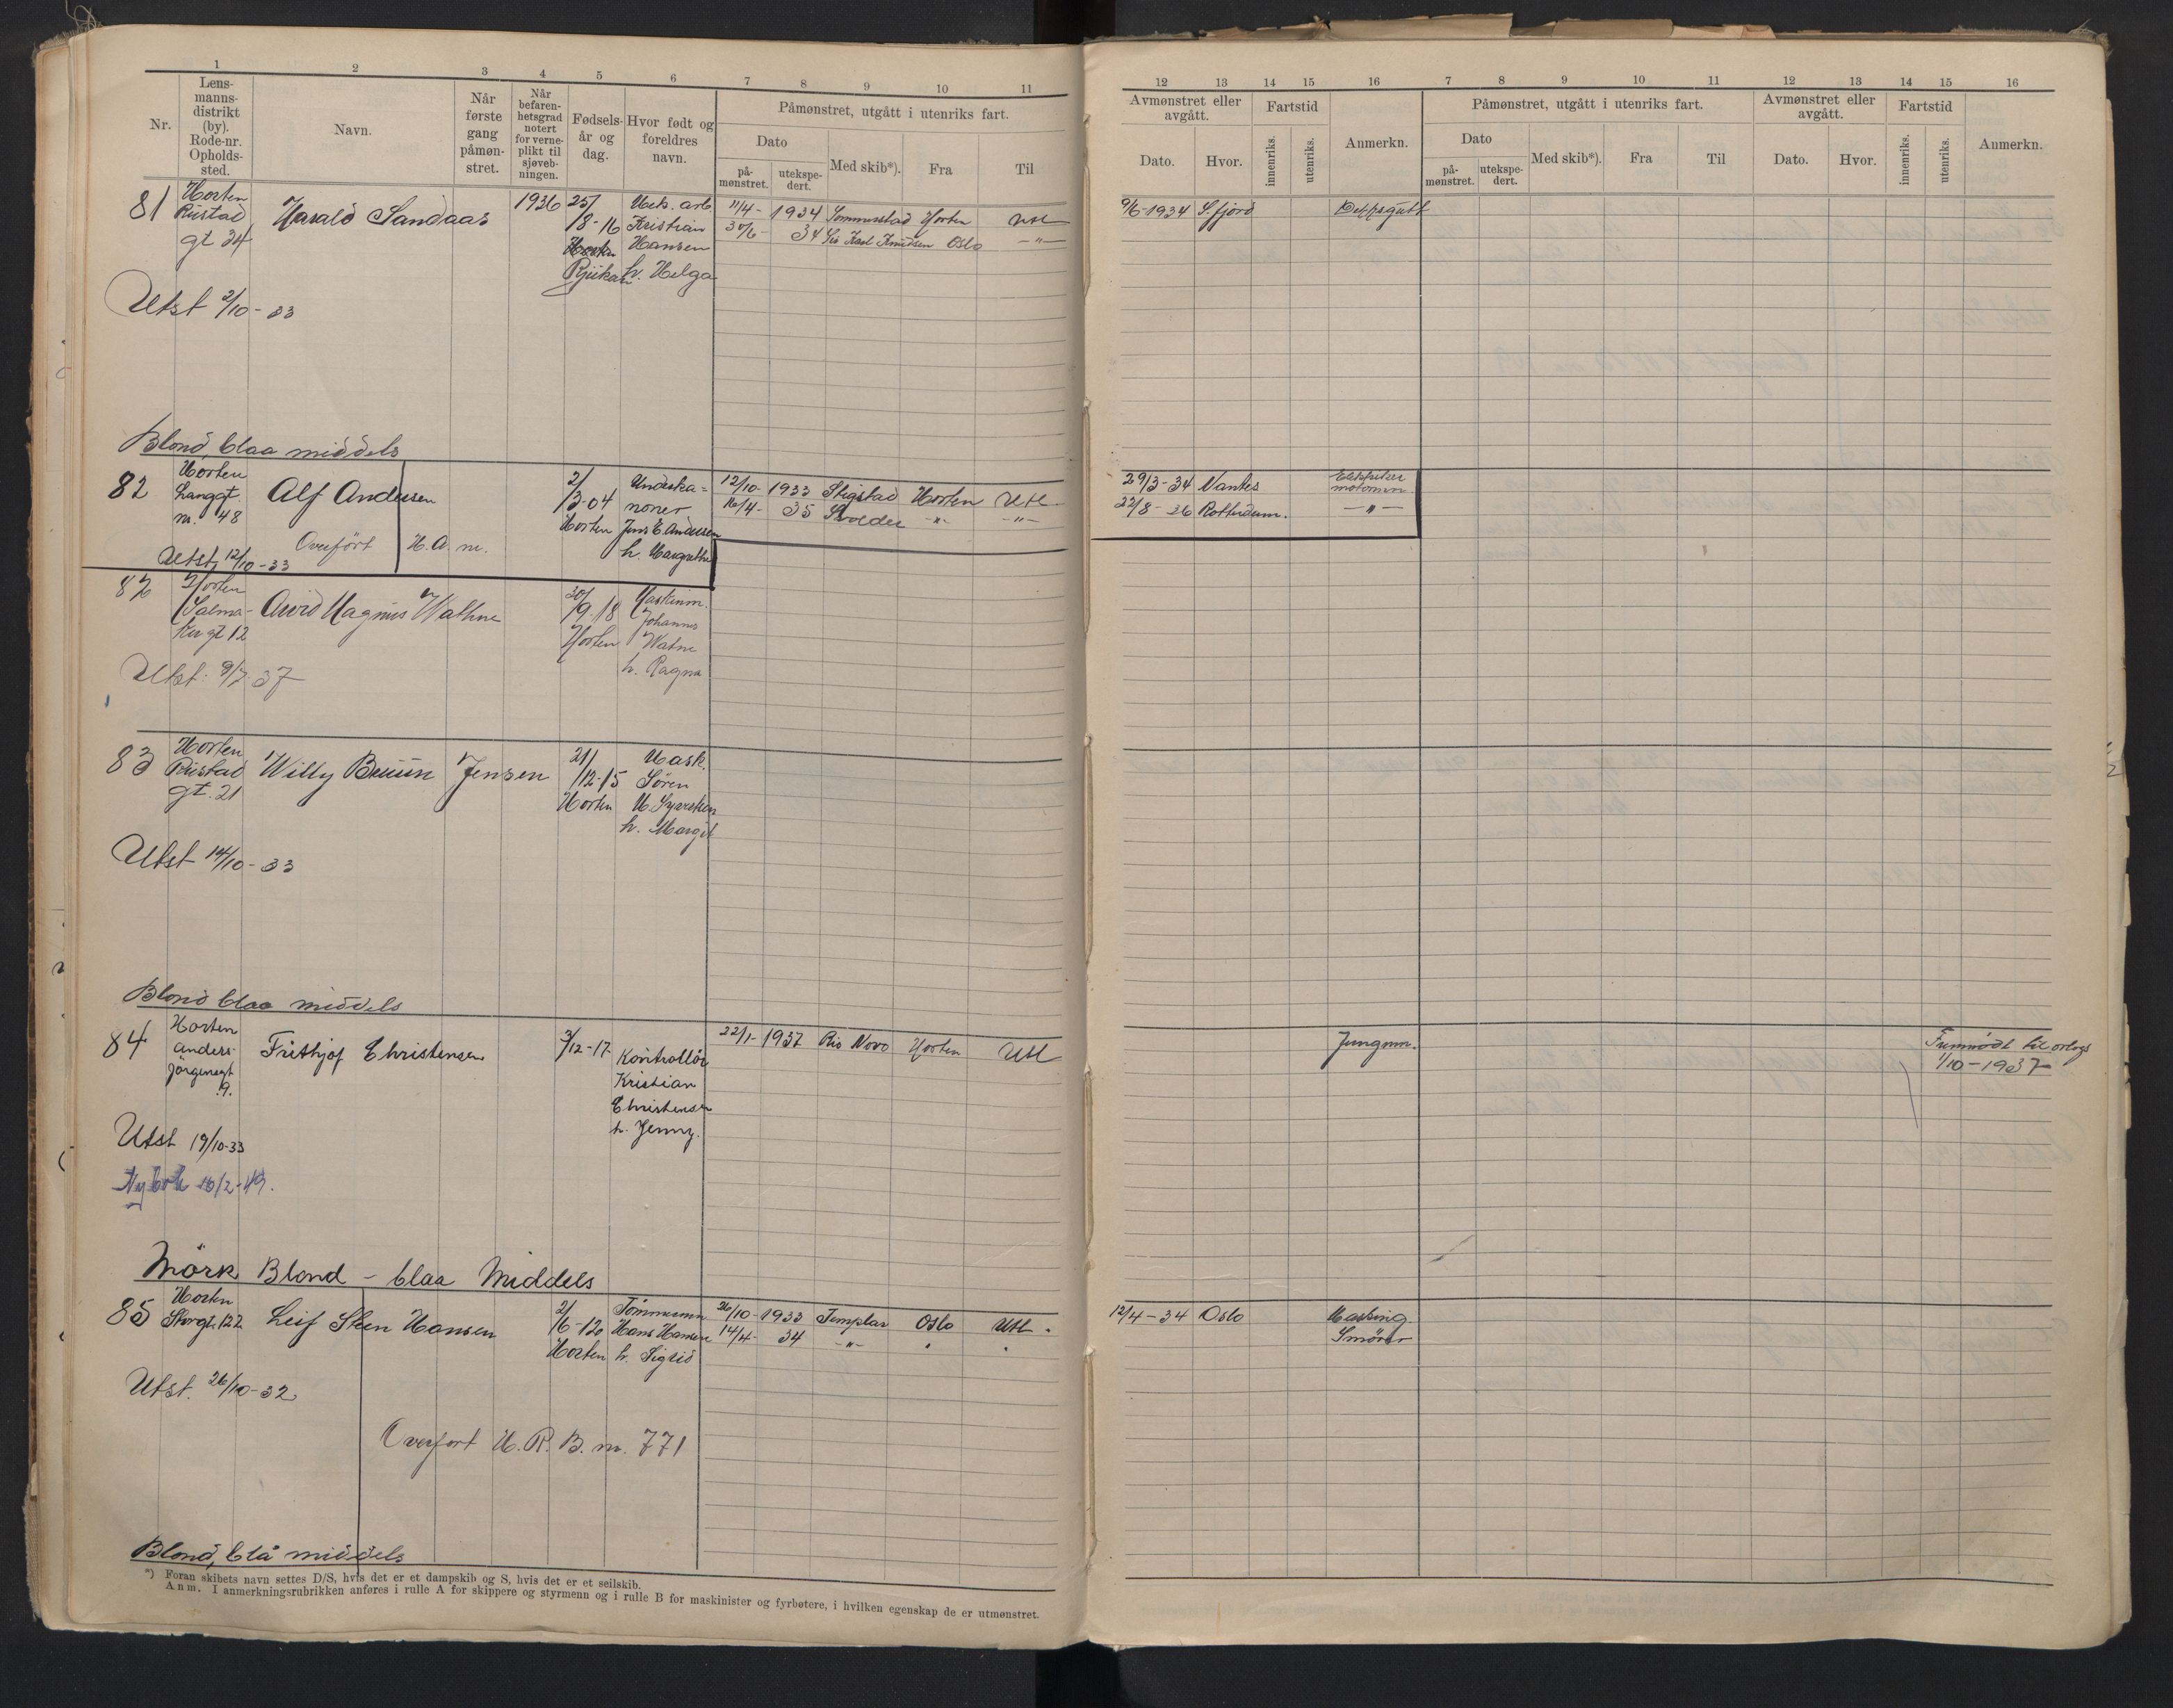 1 2 3 4 5 6 7 8 9 10 11
Nr.
Lens-
manns-
distrikt
(by).
Rode-nr.
Opholds-
sted.
Navn.
Når
første
gang
påmøn-
stret.
Når
befaren-
hetsgrad
notert
for verne-
plikt til
sjøveb-
ningen.
Fødsels-
år og
dag.
Hvor født og
foreldres
navn.
Påmønstret, utgått i utenriks fart.
Dato
på-
mønstret.
utekspe-
dert.
Med skib*).
Fra
Til
81
Horten
Rustad
gt 34
Harald Sandaas
1936
25/
/8-16
Horten
Rjukan
Mek. arb
Kristian
Hansen
h. Helga
11/4- 1934 Sommerstad Horten Utl
30/6- 34 Sis Karl Knudsen Oslo -"-
Utst 2/10-33
Blond, blaa middels
82
Horten
Langgt.
nr. 48
Alf Andersen
2/
/3-04
Horten
Underka=
noner
Jens E Andersen
h. Margrethe
12/10- 1933 Stigstad Horten Utl
16/4- 35 Svolder -"- -"-
Overført H.A. nr.
Utst, 12/10-33
82
Horten
Salma-
ker gt 12
Arvid Magnus Wathne
30/
/9-18
Horten
Maskinm.
Johannes
Watne
h. Ragna
Utst: 9/7-37
83
Horten
Rustad
gt. 21
Willy Bruun Jensen
21/
/12-15
Horten
Mask.
Søren
h. Margit
Utst 14/10-33
Blond blaa middels
84
Horten
Anders-
jørgensgt
9.
Frithjof Christensen
3/12-17
Kontrollør
Kristian
Christensen
h. Jenny.
22/1- 1937 Rio Novo Horten Utl
Utst 19/10-33
Mörk Blond - blaa Middels
85
Horten
Storgt. 122
Leif Steen Hansen
2/
/6-12
Horten
Tömmerm
Hans Hansen
h. Sigrid
26/10- 1933 Templar Oslo Utl.
14/4- 34 -"- " "
Utst. 26/10-32
Overført H.R.B. nr. 771
Blond, blå middels
*) Foran skibets navn settes D/S, hvis det er et dampskib og S, hvis det er et seilskib.
Anm. I anmerkningsrubrikken anføres i rulle A for skippere og styrmenn og i rulle B for maskinister og fyrbøtere, i hvilken egenskap de er utmønstret.
12 13 14 15 16 7 8 9 10 11 12 13 14 15 16
Avmønstret eller
avgått.
Dato.
Hvor.
Fartstid
innenriks.
utenriks.
Anmerkn.
Påmønstret, utgått i utenriks fart.
Dato
på-
mønstret.
utekspe-
dert.
Med skib*).
Fra
Til
Avmønstret eller
avgått.
Dato.
Hvor.
Fartstid
innenriks.
utenriks.
Anmerkn.
9/6-1934 S.fjord Dekksgutt
29/3-34 Nantes Elektriker
motormn.
22/8-36 Rotterdam. -"-
Jungmn.
Fremmødt til orlogs
1/10-1937
12/4-34 Oslo
Smører